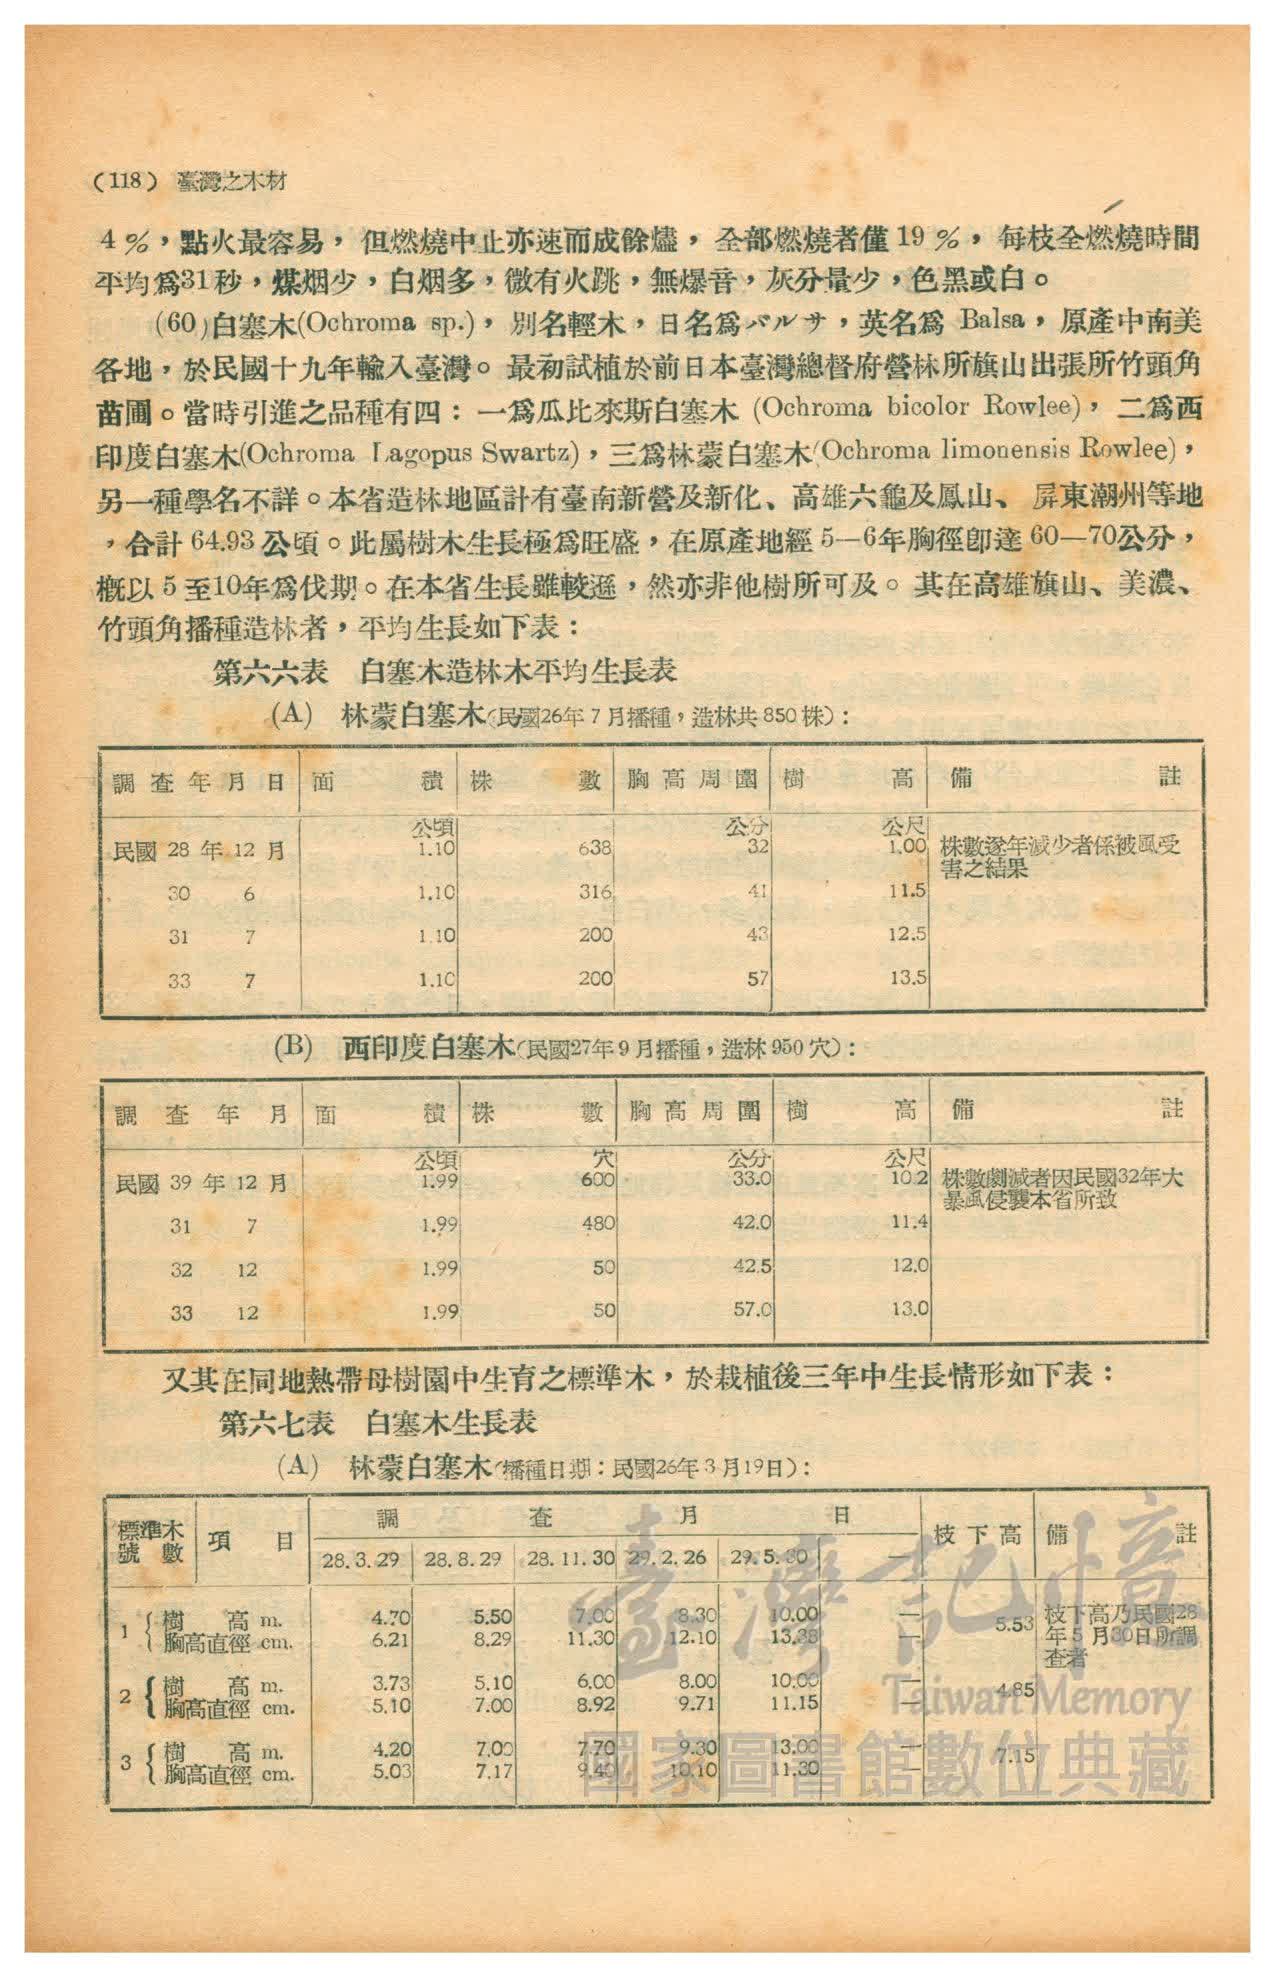 (118) 臺灣之木材
4％，點火最容易，但燃燒中止亦速而成餘燼，全部燃燒者僅19％，每枝全燃燒時間
平均爲31秒，煤烟少，白烟多，微有火跳，無爆音，灰分量少，色黑或白。
(60)白塞木(Ochroma sp.)，別名輕木，日名爲バルサ，英名爲 Balsa，原產中南美
各地，於民國十九年輸入臺灣。最初試植於前日本臺灣總督府營林所旗山出張所竹頭角
苗圃。當時引進之品種有四：一爲瓜比來斯白塞木 (Ochroma bicolor Rowlee)，二爲西
印度白塞木(Ochroma Lagopus Swartz)，三爲林蒙白塞木(Ochroma limonensis Rowlee)，
另一種學名不詳。本省造林地區計有臺南新營及新化、高雄六龜及鳳山、屏東潮州等地
，合計64.93公頃。此屬樹木生長極爲旺盛，在原產地經5—6年胸徑卽達60—70公分，
概以5至10年爲伐期。在本省生長雖較遜，然亦非他樹所可及。其在高雄旗山、美濃、
竹頭角播種造林者，平均生長如下表：
第六六表 白塞木造林木平均生長表
(A) 林蒙白塞木(民國26年7月播種，造林共850株)：
調查年月日 面積 株數 胸高周圍 樹高 備註
公頃 公分 公尺
民國28年12月 1.10 638 32 1.00 株數逐年減少者係被風受
害之結果
30 6 1.10 316 41 11.5
31 7 1.10 200 43 12.5
33 7 1.10 200 57 13.5
(B) 西印度白塞木(民國27年9月播種，造林950穴)：
調查年月 面積 株數 胸高周圍 樹高 備註
公頃 穴 公分 公尺
民國39年12月 1.99 600 33.0 10.2 株數劇減者因民國32年大
暴風侵襲本省所致
31 7 1.99 480 42.0 11.4
32 12 1.99 50 42.5 12.0
33 12 1.99 50 57.0 13.0
又其在同地熱帶母樹園中生育之標準木，於栽植後三年中生長情形如下表：
第六七表 白塞木生長表
(A) 林蒙白塞木(播種日期：民國26年3月19日)：
標準木號數 項目 調查月日 枝下高 備註
28.3.29 28.8.29 28.11.30 29.2.26 29.5.30 —
1 樹高 m. 4.70 5.50 7.00 8.30 10.00 — 5.53 枝下高乃民國28
胸高直徑 cm. 6.21 8.29 11.30 12.10 13.38 — 年5月30日所調
查者
2 樹高 m. 3.73 5.10 6.00 8.00 10.00 — 4.85
胸高直徑 cm. 5.10 7.00 8.92 9.71 11.15 —
3 樹高 m. 4.20 7.00 7.70 9.30 13.00 — 7.15
胸高直徑 cm. 5.03 7.17 9.40 10.10 11.30 —
臺灣記憶
Taiwan Memory
國家圖書館數位典藏